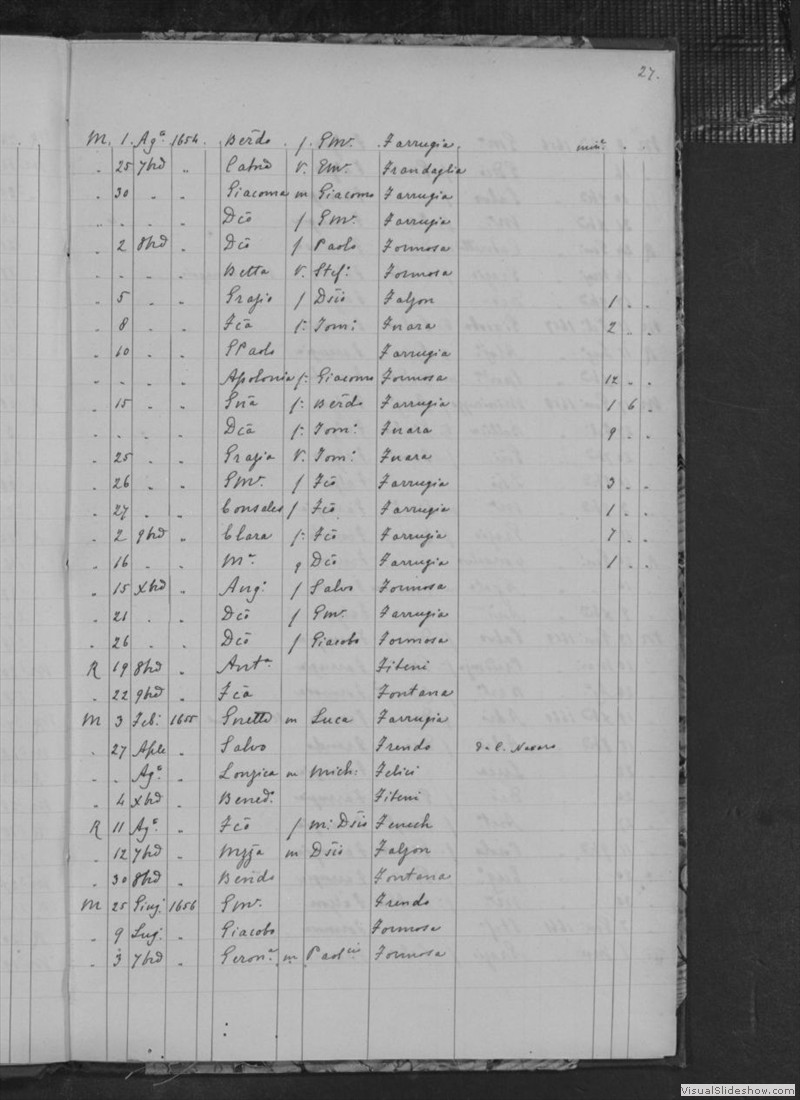 27.
M. 1. Agª 1654. Berdo. f Gmº. Farrugia. minº.
" 25 7bre " Catnª V. Gmº. Frandaglia
" 30 " " Giacoma m Giacomo Farrugia
" " " " Dcõ f Gmº. Farrugia
" 2 8bre " Dcõ f Paolo Formosa
" " " " Betta V. Stefº: Formosa
" 5 " " Grazio f Dsio Falzon 1 " "
" 8 " " Fcã f: Tomº: Fuara 2 " "
" 10 " " GPaolo Farrugia
" " " " Apolonia f: Giacomo Formosa 12 " "
" 15 " " Gnã f: Berdo Farrugia 1 6 "
" " " " Dcã f: Tomº: Fuara 9 " "
" 25 " " Grazia V. Tomº: Fuara
" 26 " " Gmº. f Fcõ Farrugia 3 " "
" 27 " " Consales f Fcõ Farrugia 1 " "
" 2 9bre " Clara f: Fcõ Farrugia 7 " "
" 16 " " Mª g Dcõ Farrugia 1 " "
" 15 Xbre " Angº: f Salvo Formosa
" 21 " " Dcõ f Gmº. Farrugia
" 26 " " Dcõ f Giacobo Formosa
R 19 8bre " Antª Fiteni
" 22 9bre " Fcã Fontana
M 3 Feb: 1655 m Luca Farrugia
" 27 Aple " Salvo Frendo da C. Navaro
" " Agª " Lonzica m Mich: Felici
" 4 Xbre " Benedº: Fiteni
R 11 Agª " Fcõ f Mº: Dsio Fenech
" 12 7bre " Mzzã m Dsio Falzon
" 30 8bre " Berido Fontana
M 25 Giug: 1656 Gmº. Frendo
" 9 Lug: " Giacobo Formosa
" 3 7bre " Geronª m Paolio Formosa
VisualSlideshow.com